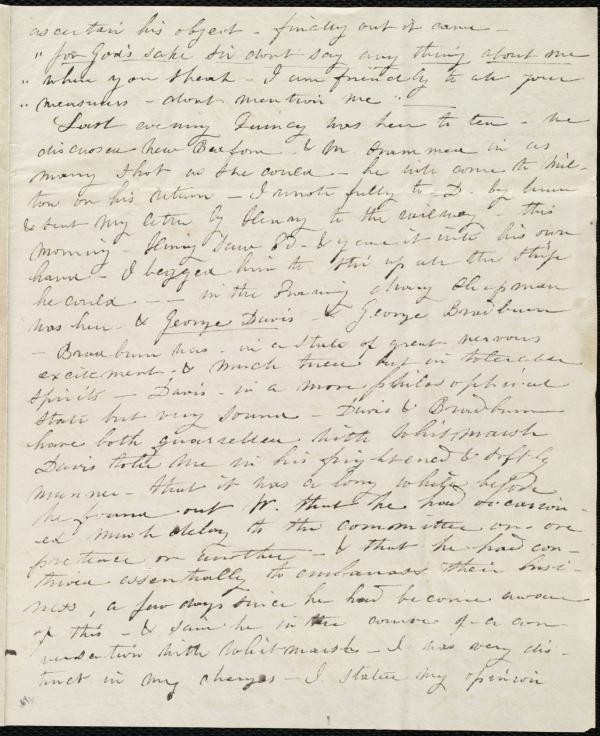 ascertain his object - finally out it came -
" for God's sake Sir dont say any thing about me
" when you speak - I am friendly to all your
" measures - dont mention me "
Last evening Quincy was here to tea - we
discussed New Bedford & in as
many shot as she could - he will come to Mil-
ton on his return - I wrote fully to D. by
& sent my letter by Henry to the railway this
morning - Henry saw D - & gave it into his own
hand - I begged him to stir up all the strife
he could -- in the Evening Chapman
was here - & George Davis - & George Bradburn
- Bradburn was in a state of great nervous
excitement - & much tried but in tolerable
spirits - Davis - in a more philosophical
state but very sound - Davis & Bradburn
have both quarrelled with Whitmarsh
Davis told me in his frightened & softly
manner - that it was a long while before
he found out W. that he had occasion-
ed much delay to the committee on one
pretence or another - & that he had con-
trived essentially to embarrass their busi-
ness, a few days since he had become aware
of this - & said he in the course of a con-
versation with Whitmarsh - I was very dis-
tinct in my charges - I stated my opinion